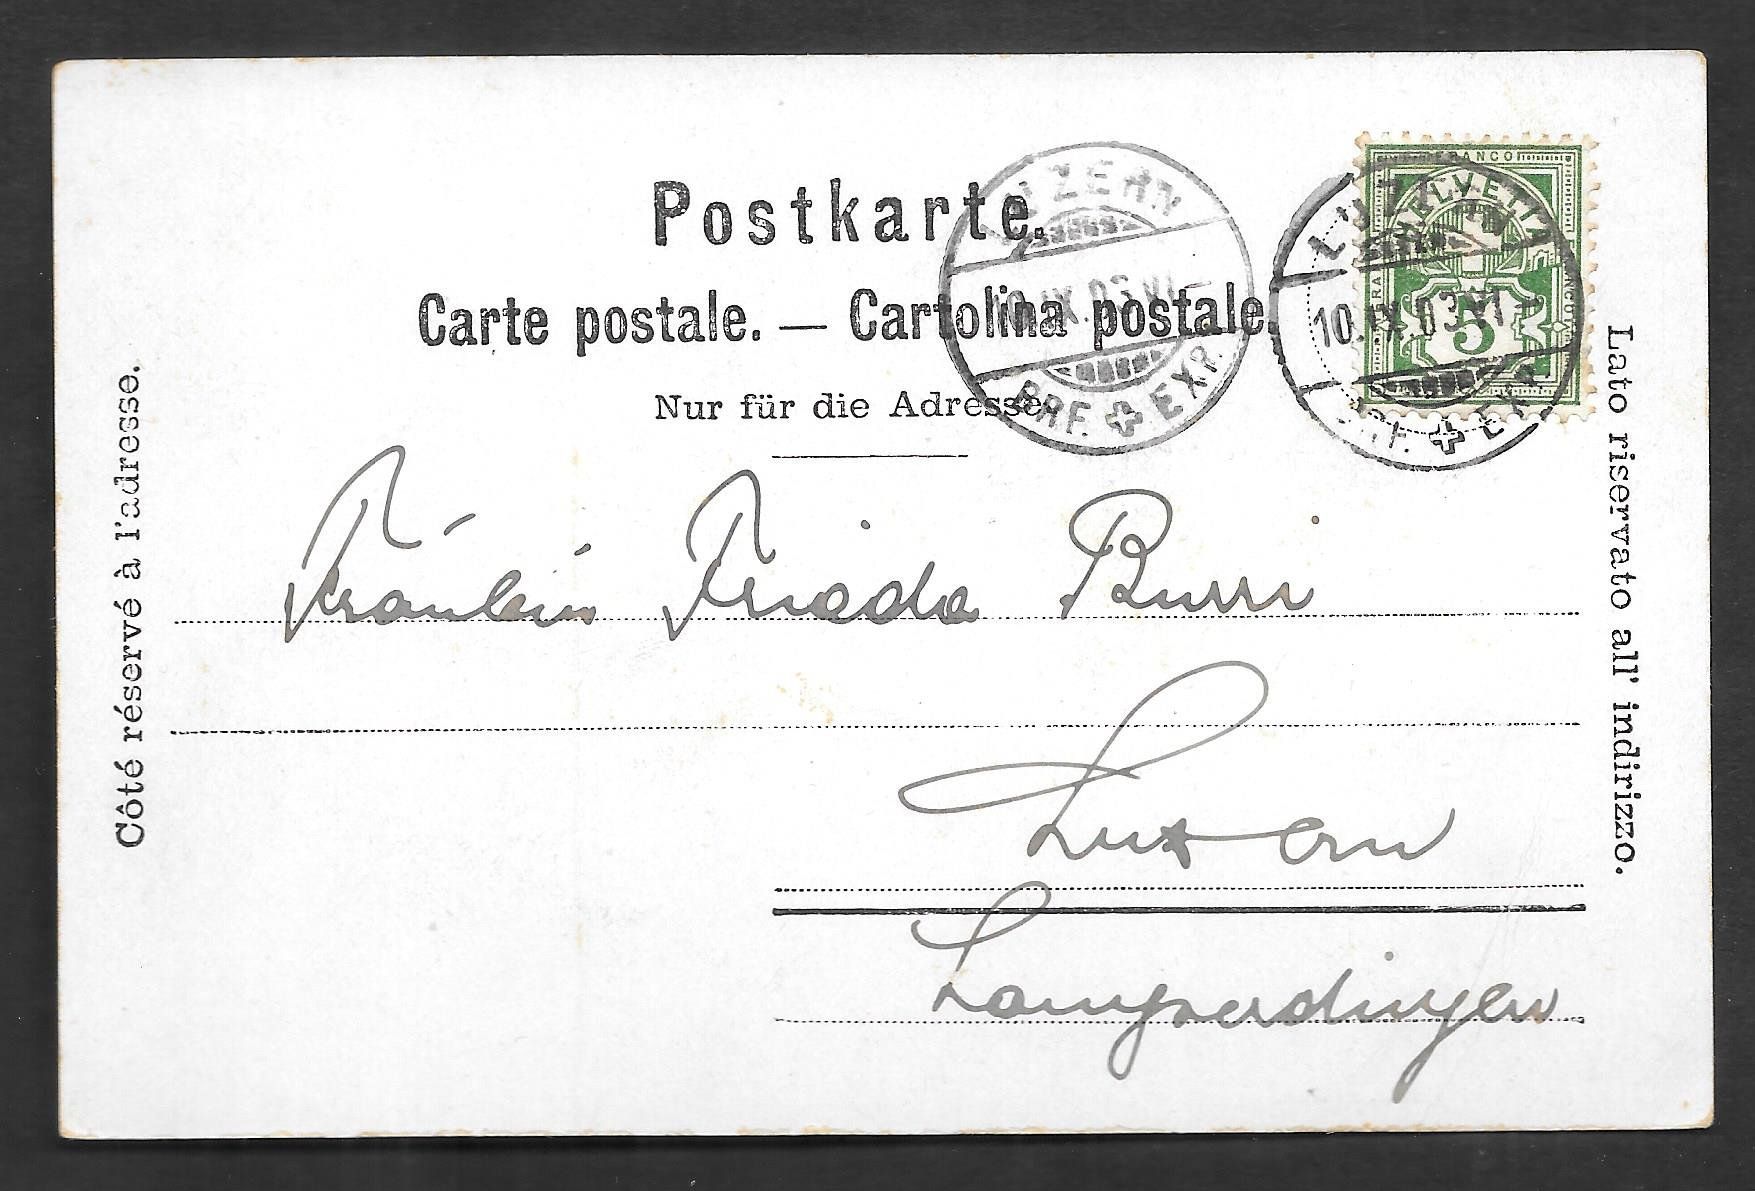 Postkarte.
Carte postale. — Cartolina postale.
Nur für die Adresse.
Côté réservé à l'adresse.
Lato riservato all' indirizzo.
LUZERN
10.IX.03.VI–
BRF. EXP.
FRANCO
HELVETIA
5
LUZERN
10.IX.03.VI–
BRF. EXP.
Fräulein Frieda Burri
Luzern